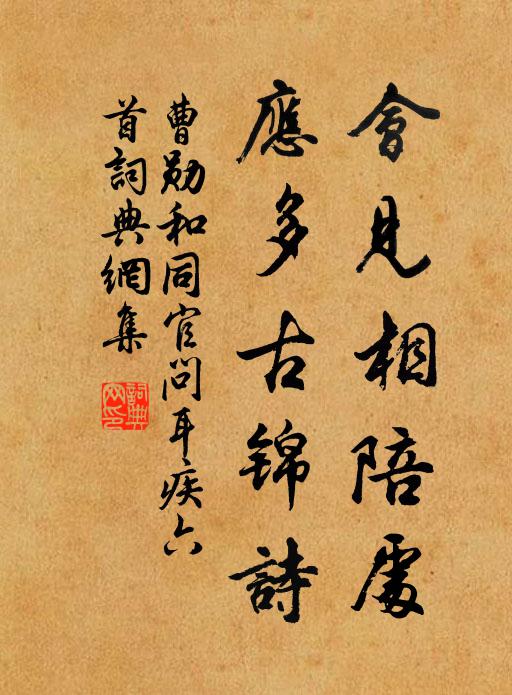 會見相陪處
應多古锦詩
曹勋和同官問耳疾六
首詞典網集
詞典
网印